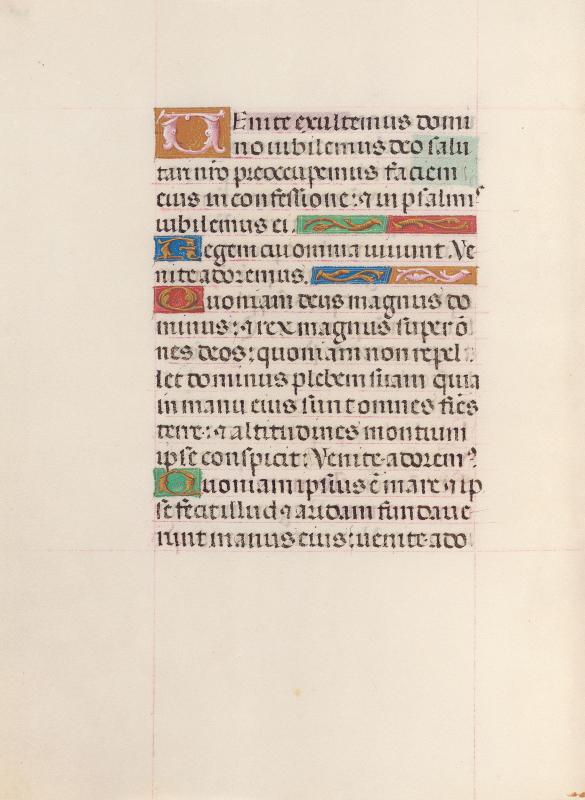 VEnite exultemus domi
no iubilemus deo salu
tari nr̄o preoccupemus faciem
eius in confessione: ⁊ in psalmıˢ
iubilemus ei.
Regem cui omnia uiuunt. Ve
nite adoremus.
Quoniam deus magnus do
minus: ⁊ rex magnus super ō
nes deos: quoniam non repel
let dominus plebem suam quia
in manu eius sunt omnes fīes
terre: ⁊ altitudines montium
ipse conspicit: Venite adoremꝰ
Quoniam ipsius ē mare ⁊ ip
se fecit illud ⁊ aridam fundaue
runt manus eius: uenite ado